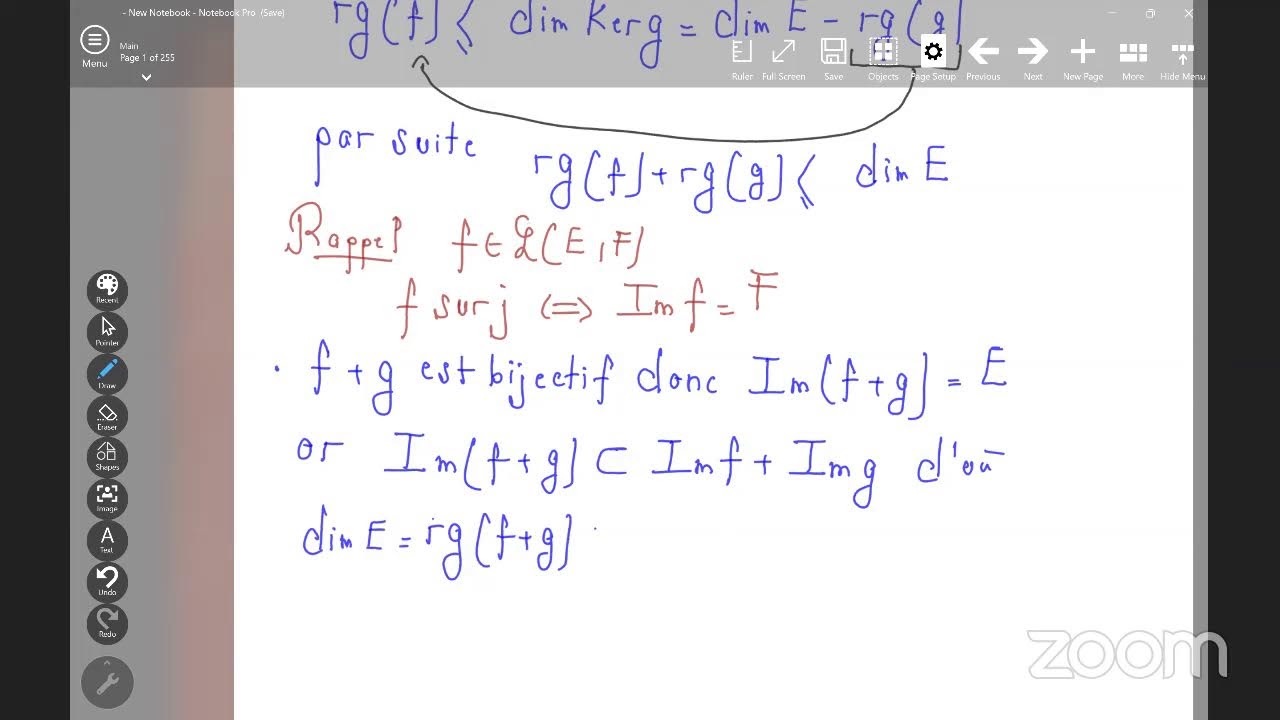 - New Notebook - Notebook Pro (Save)
rg(f) ⩽ dim Ker g = dim E - rg(g)
Menu
Main
Page 1 of 255
Ruler Full Screen Save Objects Page Setup Previous Next New Page More Hide Menu
par suite
rg(f) + rg(g) ⩽ dim E
Rappel f ∈ ℒ(E, F)
f surj ⟺ Im f = F
• f + g est bijectif donc Im(f + g) = E
or Im(f + g) ⊂ Im f + Im g d'où
dim E = rg(f + g)
Recent
Pointer
Draw
Eraser
Shapes
Image
A
Text
Undo
Redo
zoom